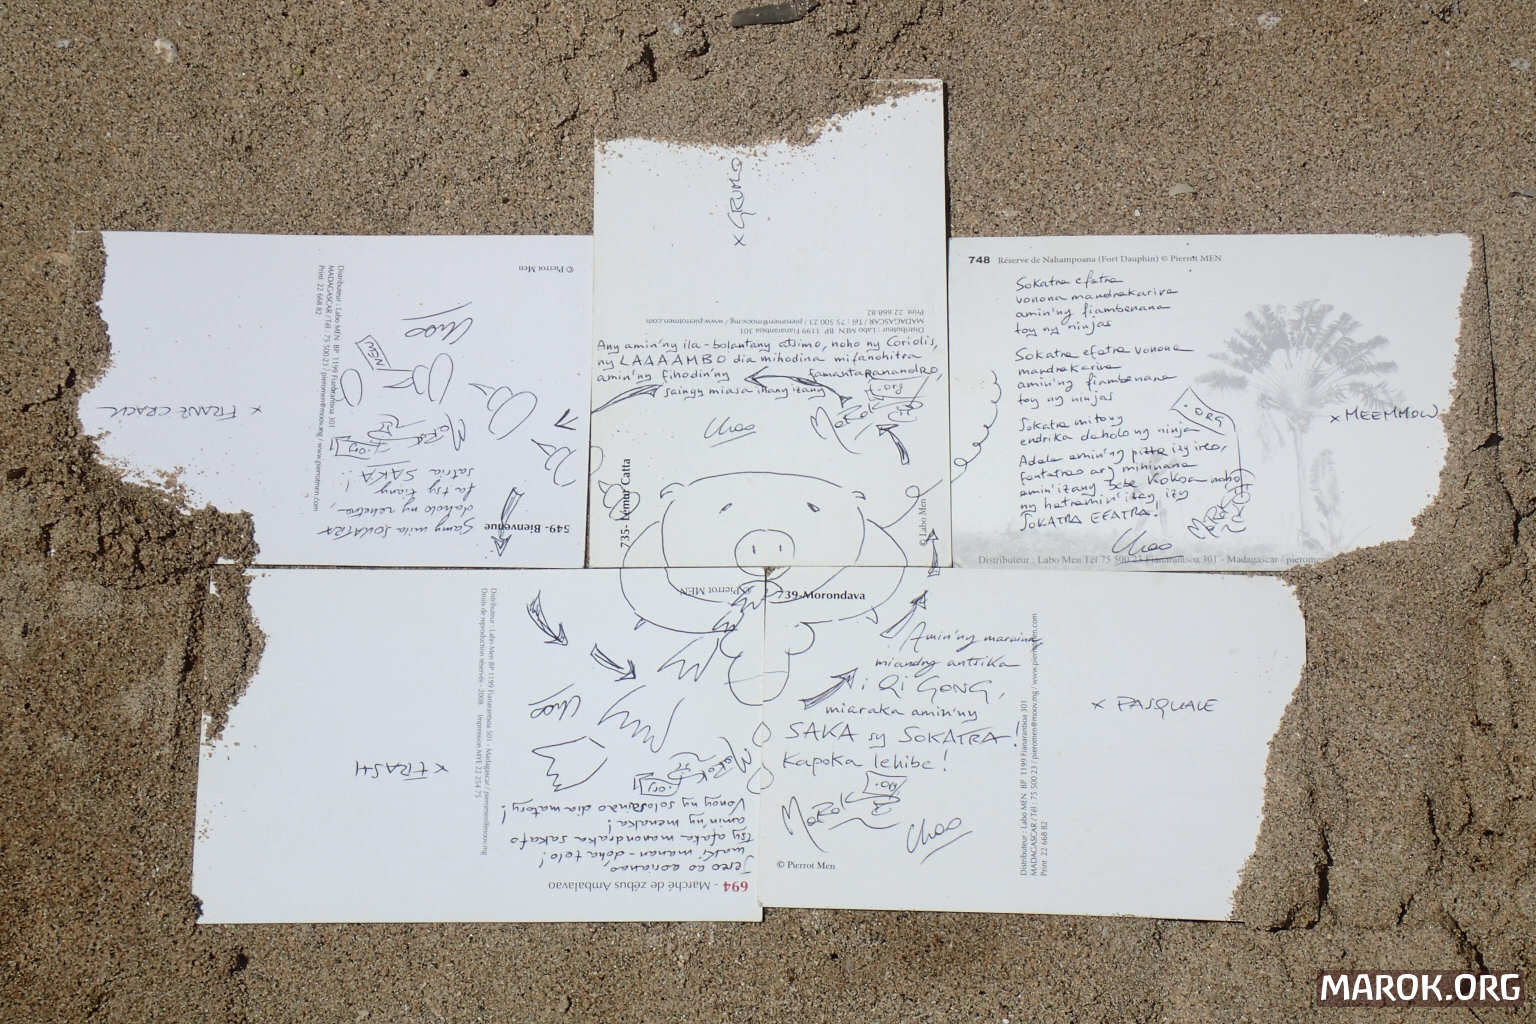 © Pierrot Men
Distributeur : Labo MEN BP 1199 Fianarantsoa 301
MADAGASCAR / Tél : 75 500 23 / pierrotmen@moov.mg / www.pierrotmen.com
Print 22 668 82
x FRANZ CRACK
Ciao
NEW
MaRok
.org
549- Bienvenue
Samy mila SOKATRA
daholo ny rehetra,
fa tsy tiany
satria SAKA!!
x GRUMO
Distributeur : Labo MEN BP 1199 Fianarantsoa 301
MADAGASCAR / Tél : 75 500 23 / pierrotmen@moov.mg / www.pierrotmen.com
Print 22 668 82
Any amin'ny ila-bolantany atsimo, noho ny Coriolis,
ny LAAAAMBO dia mihodina mifanohitra
amin'ny fihodin'ny famantaranandro,
sainy miasa ihany izany
Ciao
MaRok
.org
735- Lemur Catta
© Labo Men
748 Réserve de Nahampoana (Fort Dauphin) © Pierrot MEN
Sokatra efatra
vonona mandrakariva
amin'ny fiambenana
toy ny ninjas
Sokatra efatra vonona
mandrakariva
amin'ny fiambenana
toy ny ninjas
Sokatra mitovy
endrika daholo ny ninja
Adala amin'ny pizza izy ireo,
fantatrao ary mihinana
amin'izany be be kokoa noho
ny hatramin'izay izy
SOKATRA EFATRA!
Ciao
MaRok
.ORG
x MEEMMOW
Distributeur : Labo Men Tél 75 500 23 Fianarantsoa 301 - Madagascar / pierrotm
694 - Marché de zébus Ambalavao
© Pierrot MEN
Jereo eo aorianao,
maki manan-doha telo!
tsy afaka manondraka sakafo
amin'ny menaka!
Vonoy ny solosaina dia matory!
MaRok
.org
Ciao
x FRASH
Distributeur : Labo Men BP 1199 Fianarantsoa 301 - Madagascar / pierrotmen@moov.mg
Droits de reproduction réservés - 2008
739-Morondava
Amin'ny maraina
mianatra antsika
i QI GONG,
miaraka amin'ny
SAKA sy SOKATRA!
Kapoka lehibe!
MaRok
.org
Ciao
© Pierrot Men
Distributeur : Labo MEN BP 1199 Fianarantsoa 301
MADAGASCAR / Tél : 75 500 23 / pierrotmen@moov.mg / www.pierrotmen.com
Print 22 668 82
x PASQUALE
MAROK.ORG